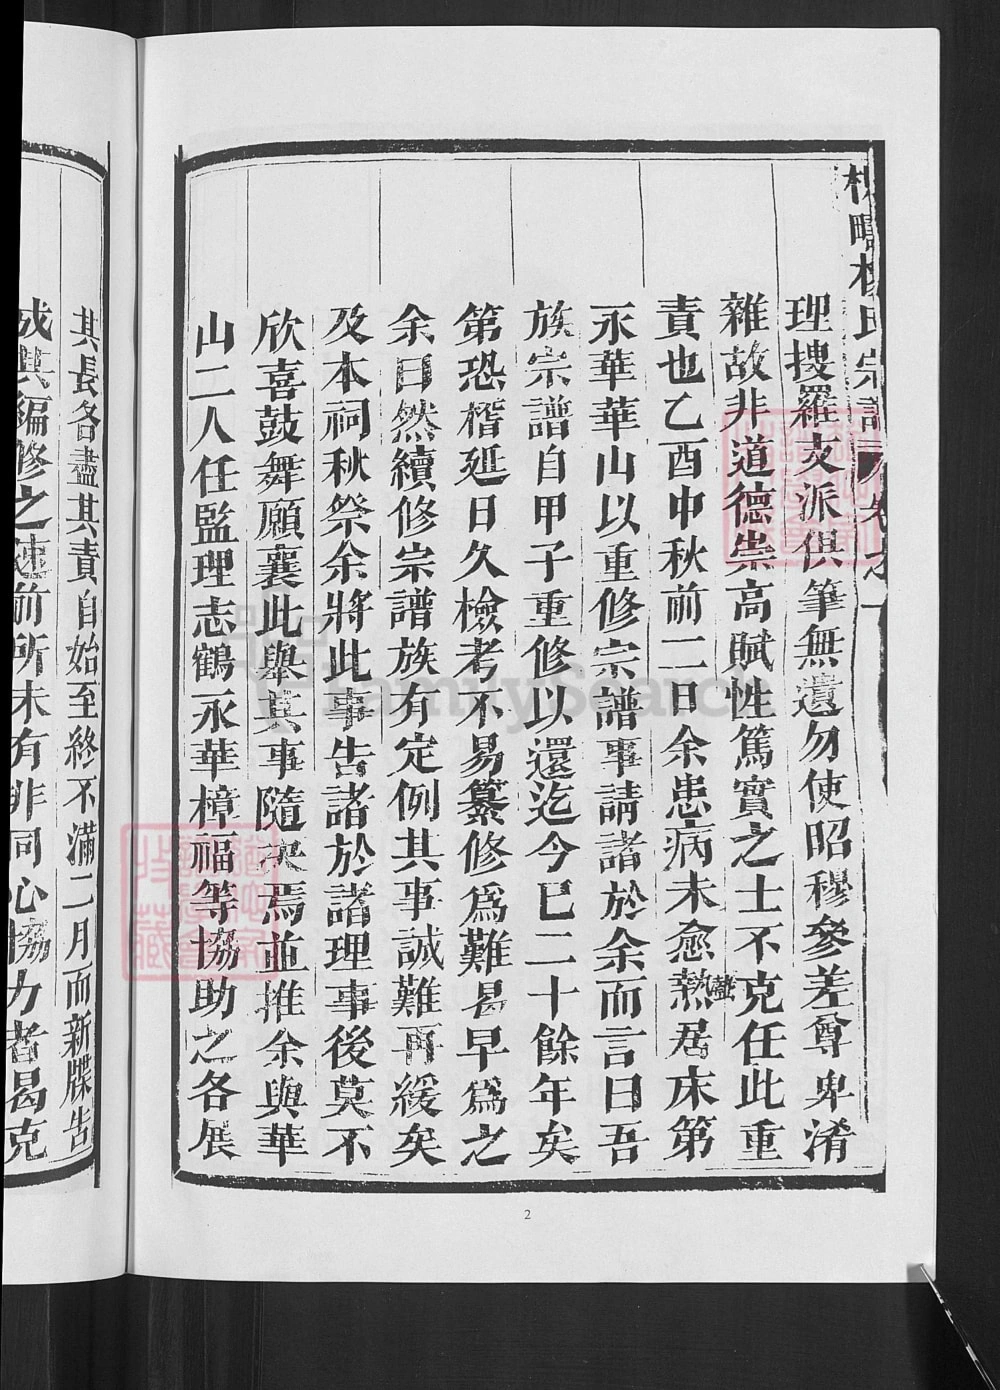 理搜羅支派俱筆無遺勿使昭穆參差尊卑淆
雜故非道德崇高賦性篤實之士不克任此重
責也乙酉中秋前二日余患病未愈熱居床第
永華華山以重修宗譜事請諸於余而言曰吾
族宗譜自甲子重修以還迄今已二十餘年矣
第恐稽延日久檢考不易纂修爲難曷早爲之
余曰然續修宗譜族有定例其事誠難再緩矣
及本祠秋祭余將此事告諸於諸理事後莫不
欣喜鼓舞願襄此舉其事隨決焉並推余與華
山二人任監理志鶴永華樟福等協助之各展
其長各盡其責自始至終不滿二月而新牒告
成其編修之速前所未有非同心協力者曷克
2
FamilySearch